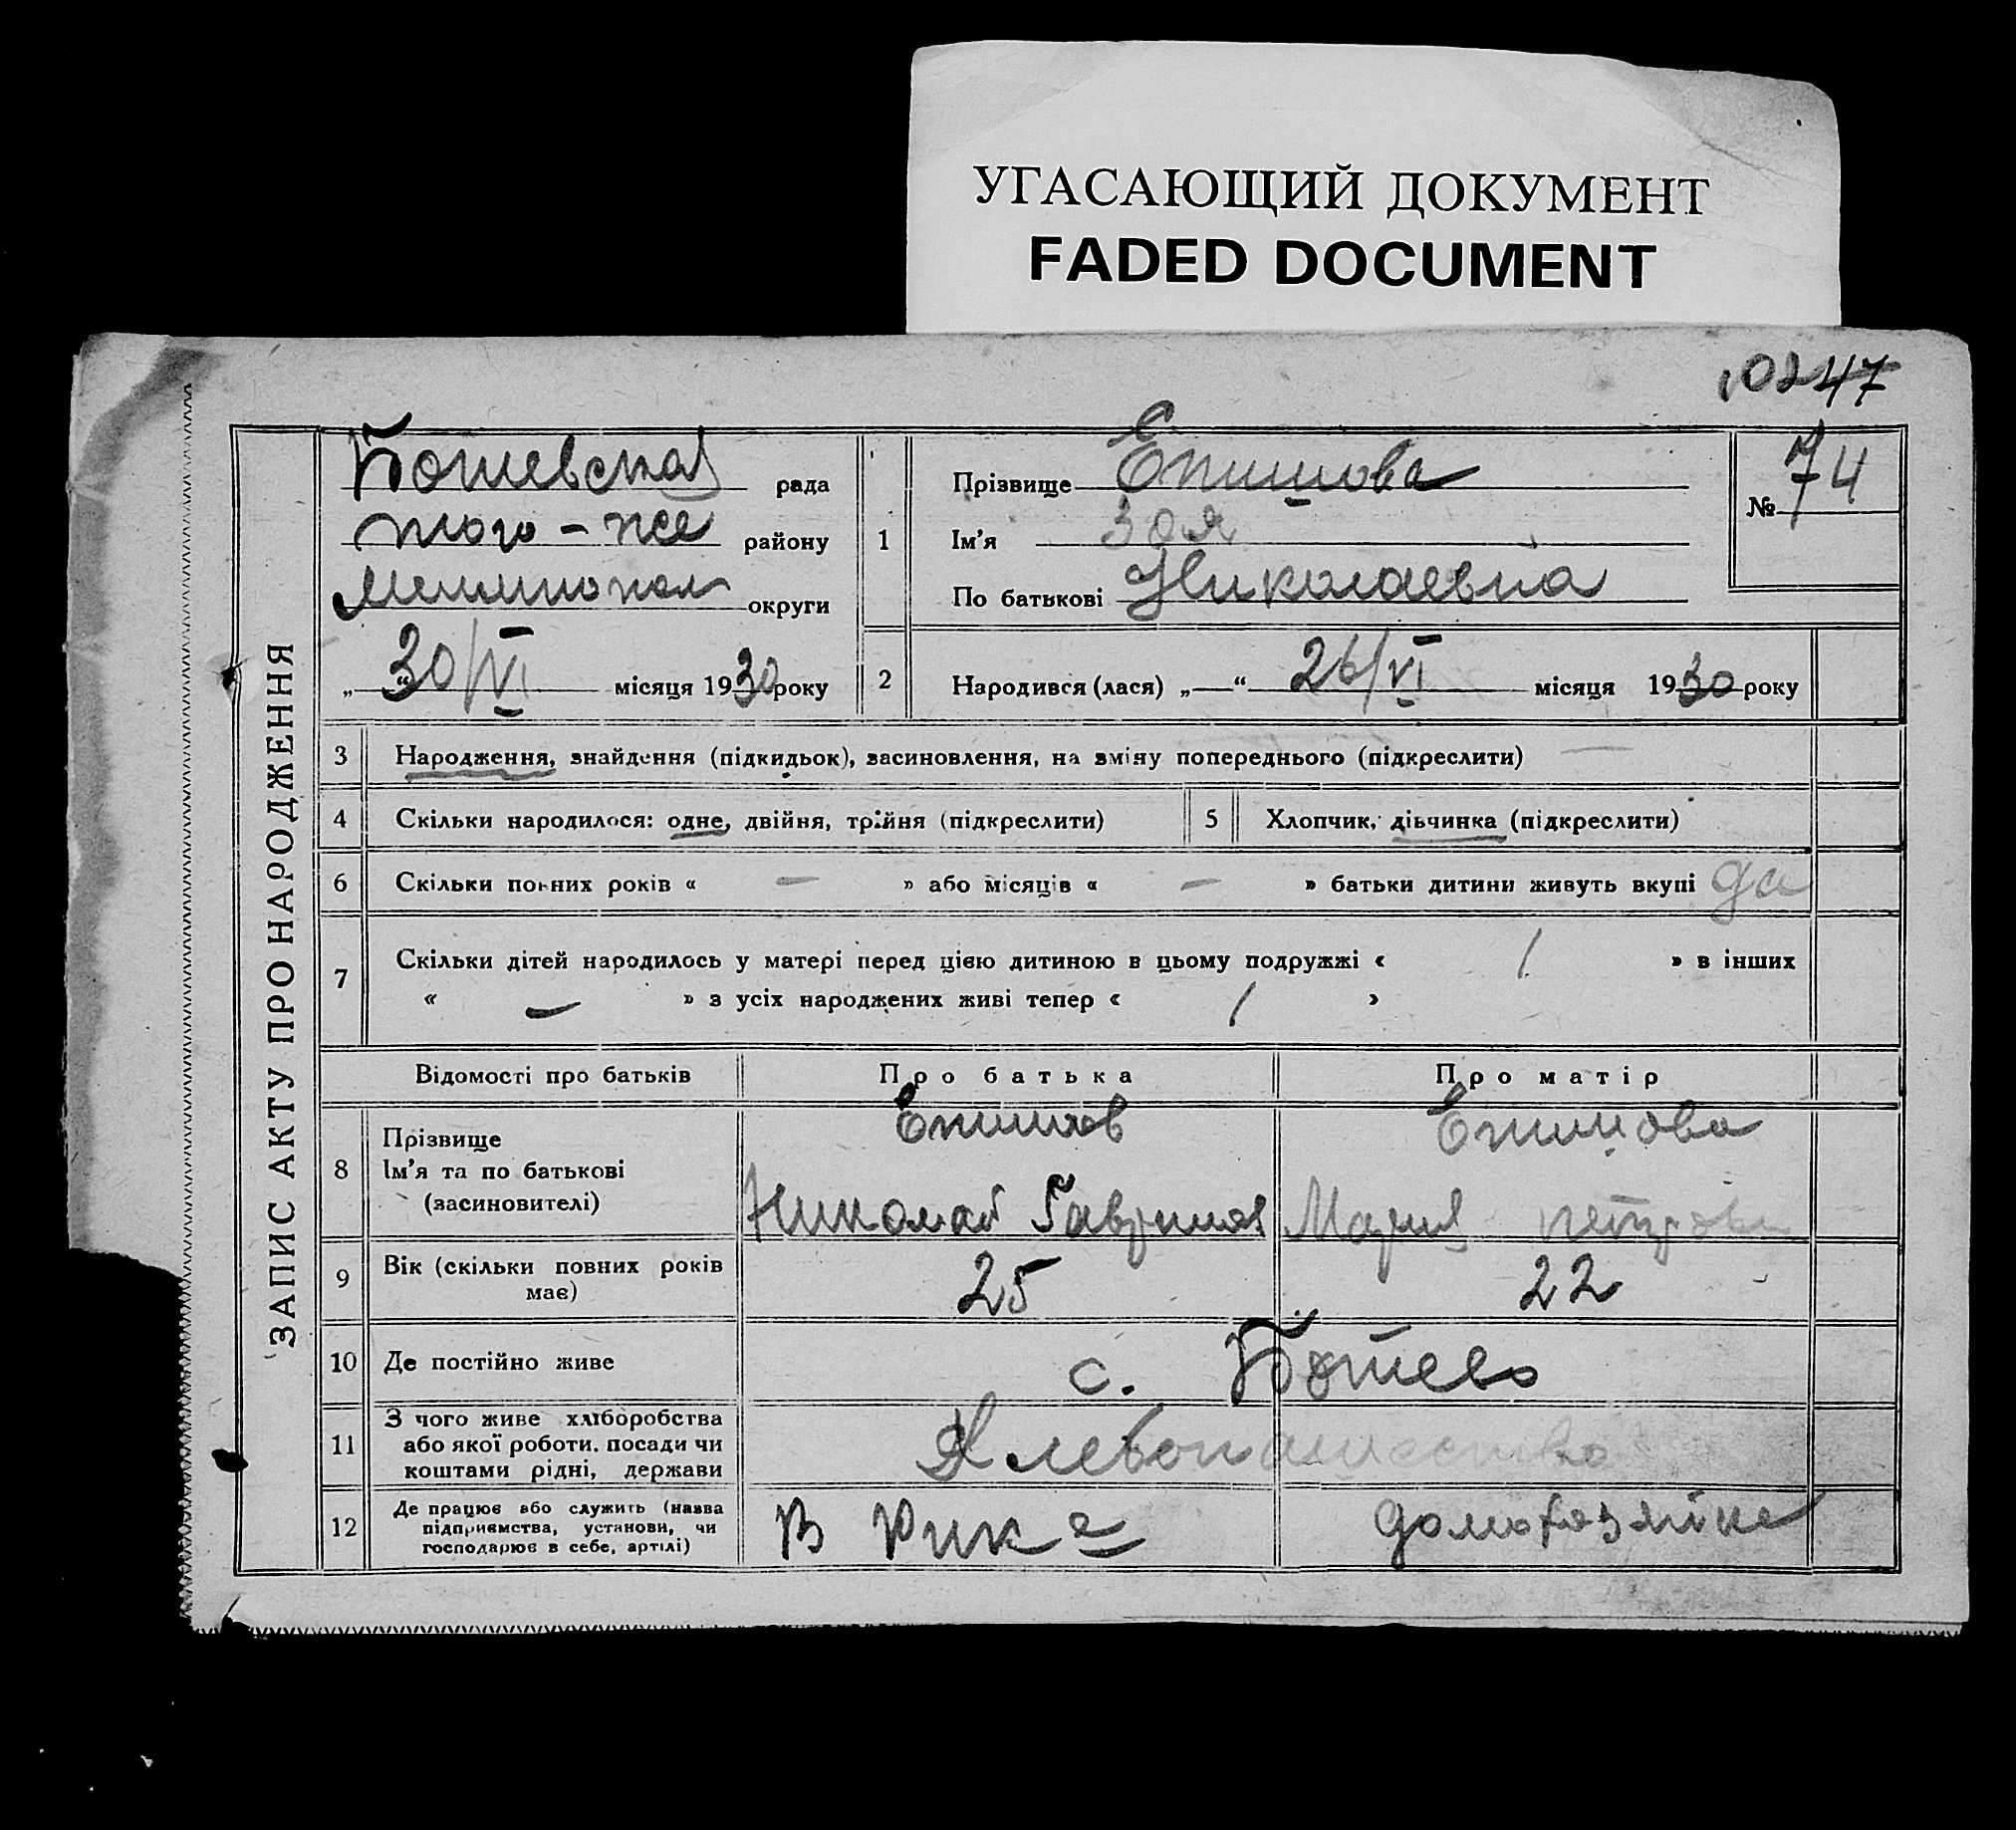 УГАСАЮЩИЙ ДОКУМЕНТ
FADED DOCUMENT
0247
ЗАПИС АКТУ ПРО НАРОДЖЕННЯ
Ботевская рада
того-же району
Мелитопол округи
„ “ 30/VI місяця 1930 року
1
Прізвище Епишова
Ім'я Зоя
По батькові Николаевна
№ 74
2 Народився (лася) „ “ 26/VI місяця 1930 року
3 Народження, знайдення (підкидьок), засиновлення, на зміну попереднього (підкреслити) —
4 Скільки народилося: одне, двійня, трійня (підкреслити)
5 Хлопчик, дівчинка (підкреслити)
6 Скільки повних років « — » або місяців « — » батьки дитини живуть вкупі да
7 Скільки дітей народилось у матері перед цією дитиною в цьому подружжі « 1 » в інших
« — » з усіх народжених живі тепер « 1 »
Відомості про батьків Про батька Про матір
8 Прізвище
Ім'я та по батькові
(засиновителі)
Епишов
Николай
Епишова
Мария Петровна
9 Вік (скільки повних років
має)
25 22
10 Де постійно живе с. Ботево
11 З чого живе хліборобства
або якої роботи. посади чи
коштами рідні, держави
Хлебопашество
12 Де працює або служить (назва
підприємства, установи, чи
господарює в себе, артілі)
В Рике домохозяйка